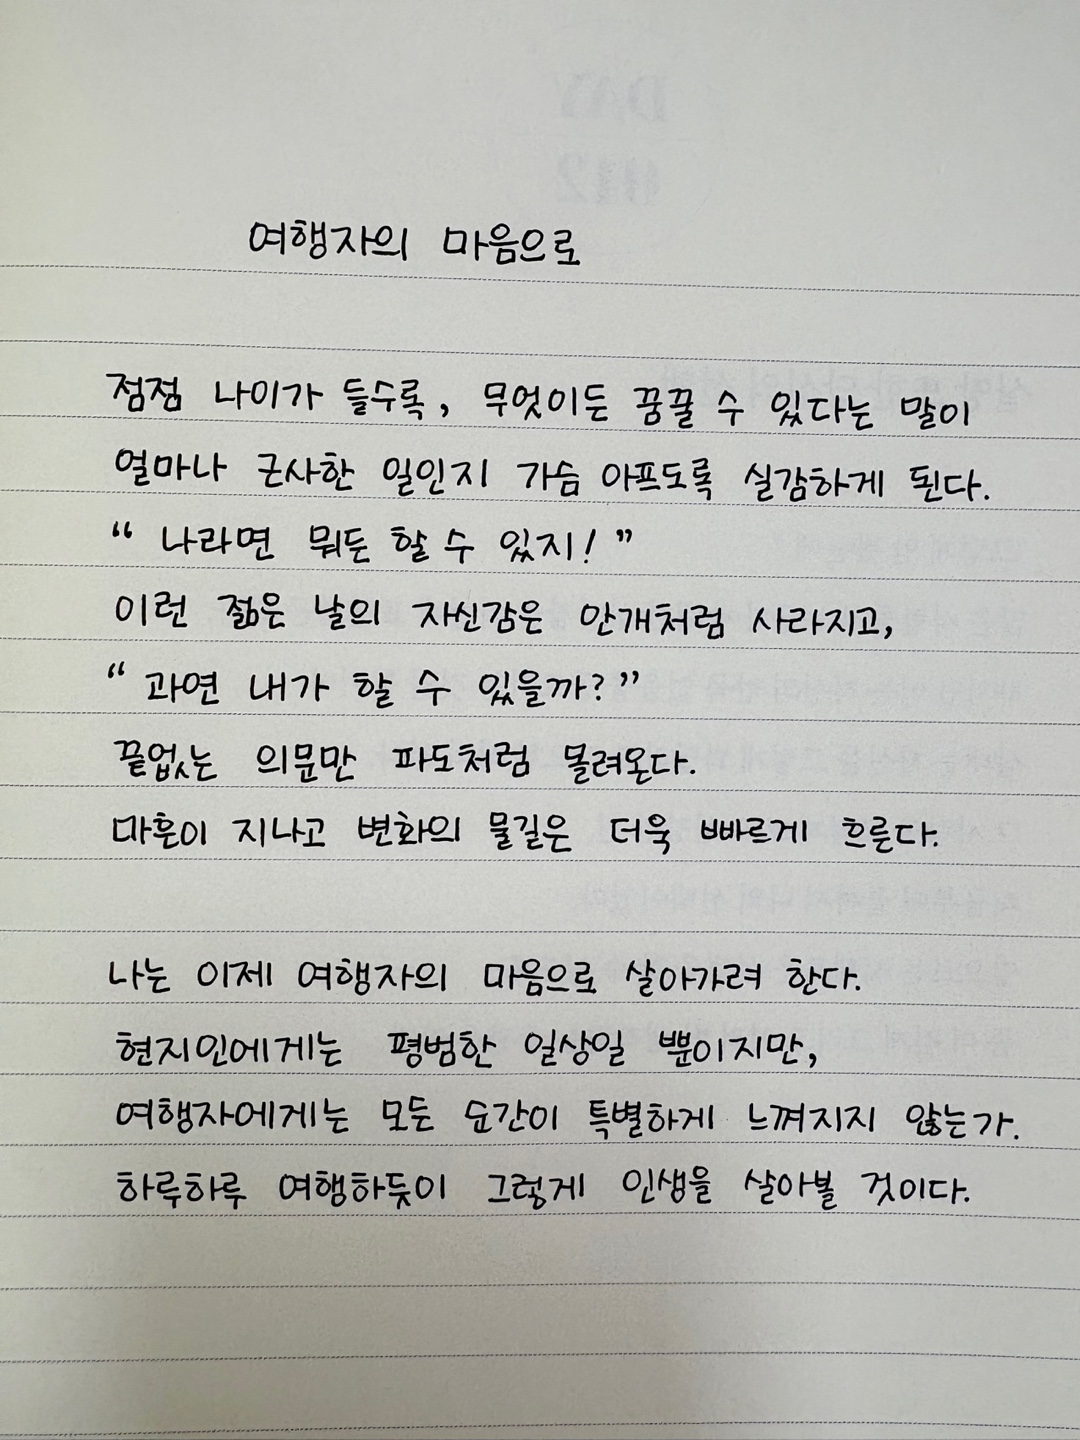 여행자의 마음으로
점점 나이가 들수록, 무엇이든 꿈꿀 수 있다는 말이
얼마나 근사한 일인지 가슴 아프도록 실감하게 된다.
“ 나라면 뭐든 할 수 있지! ”
이런 젊은 날의 자신감은 안개처럼 사라지고,
“ 과연 내가 할 수 있을까? ”
끝없는 의문만 파도처럼 몰려온다.
마흔이 지나고 변화의 물길은 더욱 빠르게 흐른다.
나는 이제 여행자의 마음으로 살아가려 한다.
현지인에게는 평범한 일상일 뿐이지만,
여행자에게는 모든 순간이 특별하게 느껴지지 않는가.
하루하루 여행하듯이 그렇게 인생을 살아볼 것이다.